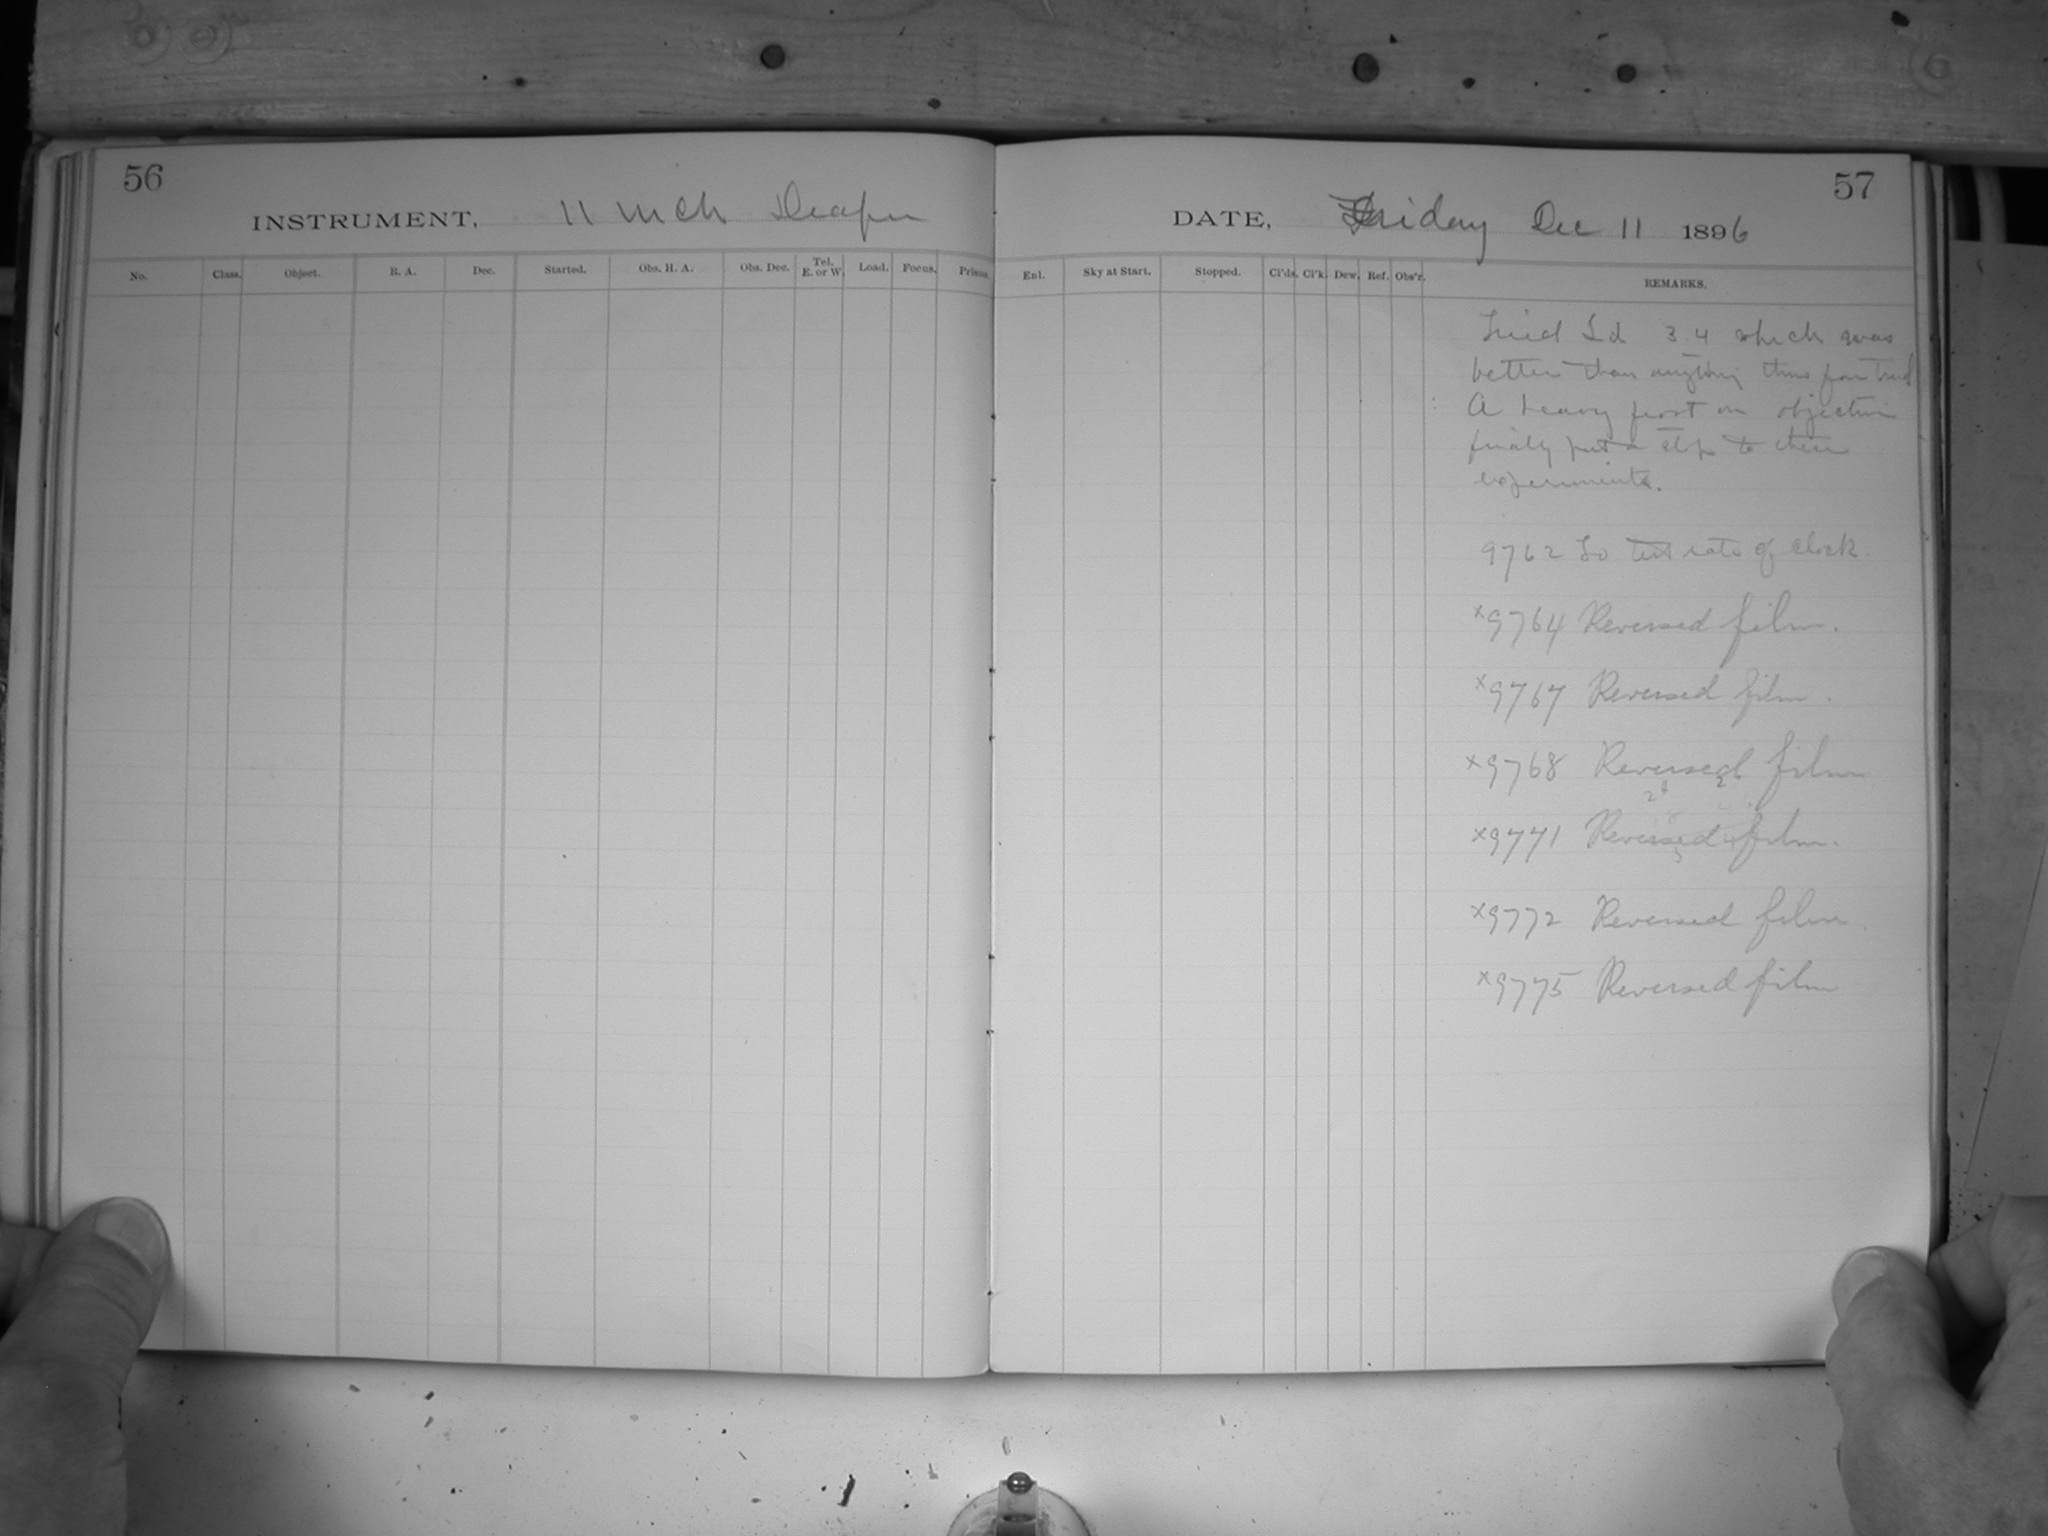 56
INSTRUMENT, 11 inch Draper
No. Class. Object. R. A. Dec. Started. Obs. H. A. Obs. Dec. Tel. E. or W. Load. Focus. Prisms.
57
DATE, Friday Dec 11 1896
Enl. Sky at Start. Stopped. Cl'ds. Cl'k. Dew. Ref. Obs'r. REMARKS.
Tried Ld 3.4 which was
better than anything thus far tried
A heavy frost on objective
finally put a stop to these
experiments.
9762 To test rate of clock
x9764 Reversed film.
x9767 Reversed film.
x9768 Reversed film
x9771 Reversed film.
x9772 Reversed film.
x9775 Reversed film